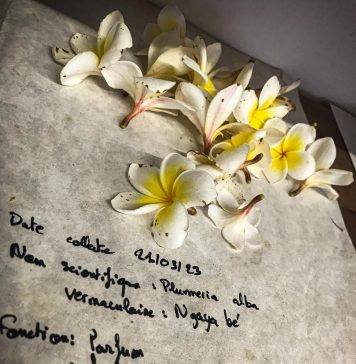 Date collecte 21/03/23
Nom scientifique : Plumeria alba
vernaculaire : Ngaya bé
Fonction: Parfum